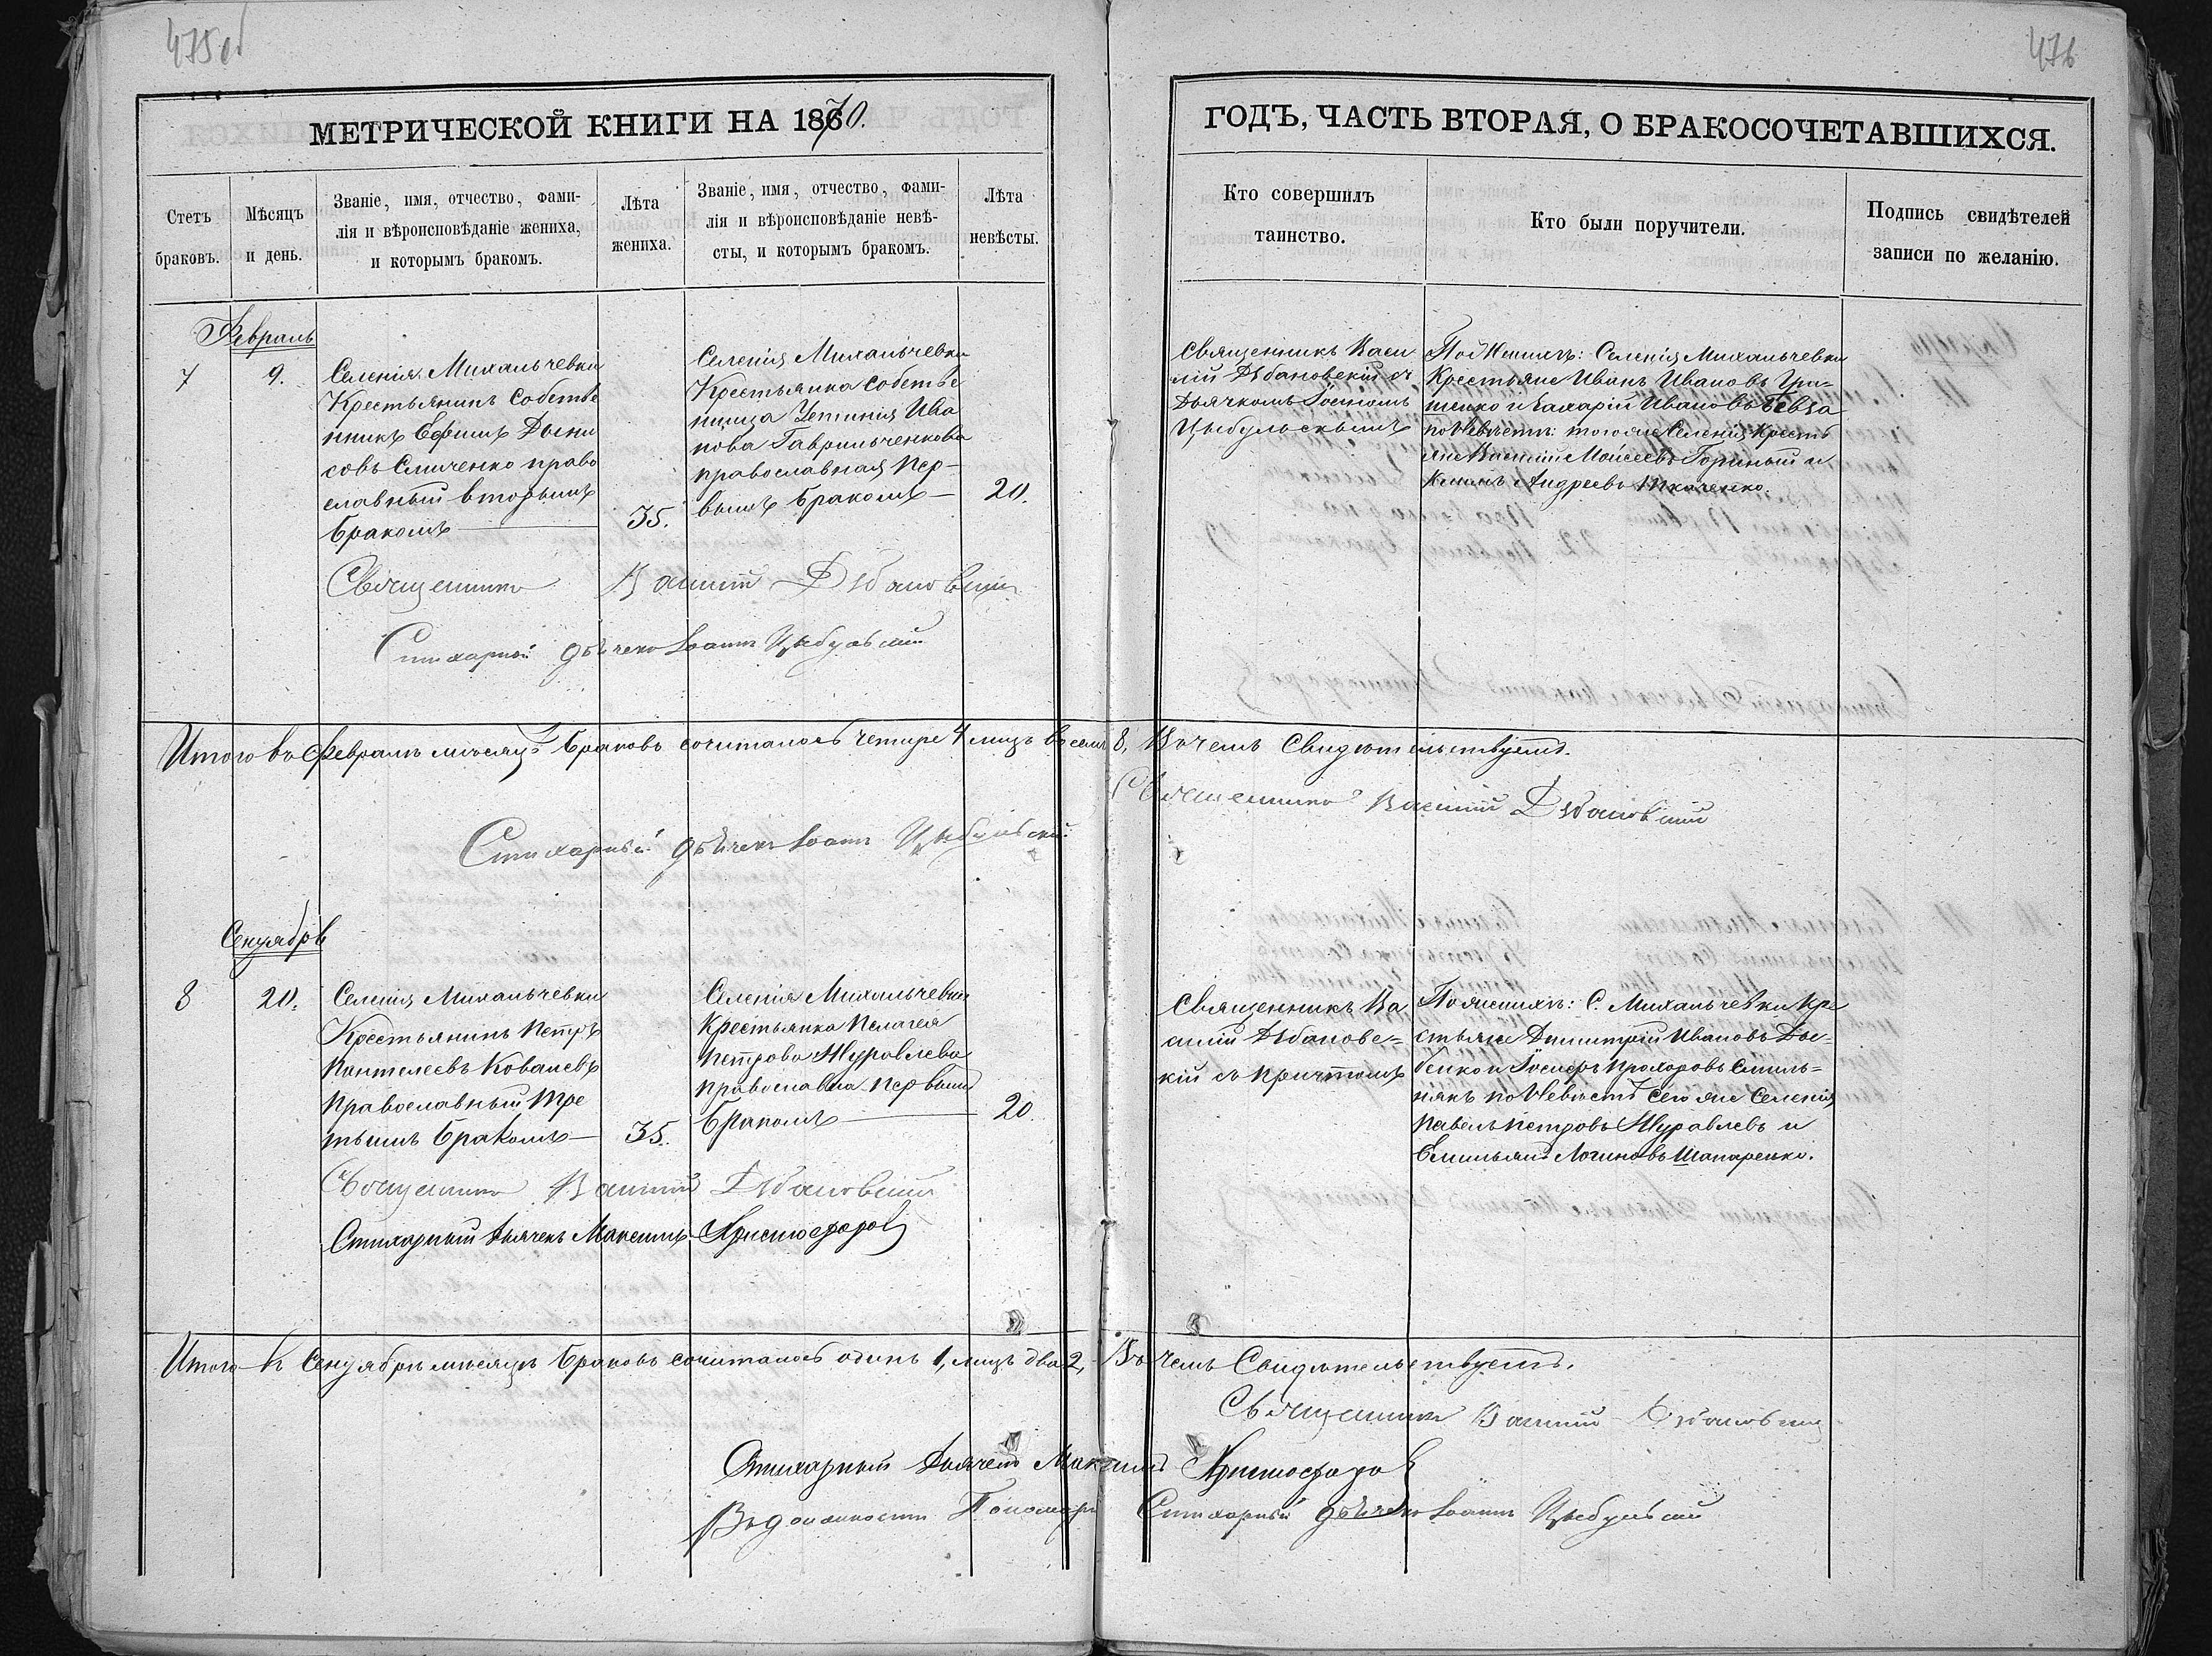 475об
476
МЕТРИЧЕСКОЙ КНИГИ НА 1870.
ГОДЪ, ЧАСТЬ ВТОРАЯ, О БРАКОСОЧЕТАВШИХСЯ.
Стетъ
браковъ.
Мѣсяцъ
и день.
Званіе, имя, отчество, фами-
лія и вѣроисповѣданіе жениха,
и которымъ бракомъ.
Лѣта
жениха.
Званіе, имя, отчество, фами-
лія и вѣроисповѣданіе невѣ-
сты, и которымъ бракомъ.
Лѣта
невѣсты.
Кто совершилъ
таинство.
Кто были поручители.
Подпись свидѣтелей
записи по желанію.
Февраль
7
9.
Селенія Михальчевки
Крестьянинъ Собстве
нникъ Ефимъ Дени
совъ православный вторымъ
бракомъ
35.
Селенія Михальчевки
Крестьянка собстве
нница Устинія Ива
нова Гаврильченкова
православная пер-
вымъ бракомъ
20.
Священникъ Васи
лій Дѣбановскій съ
Дьячкомъ Іоанномъ
Цыбульскимъ
По Женихѣ: Селенія Михальчевки
Крестьяне Иванъ Ивановъ Гри-
шенко и Захарій Ивановъ Бевза
по Невѣстѣ: тогоже Селенія Кресть
яне Василій Моисеевъ и
Андреевъ Ткаченко.
Священникъ Василій Дѣбановскій
Стихарный дьячекъ Іоаннъ Цыбульскій
Итого въ Февралѣ мѣсяцѣ браковъ сочиталось четыре 4 лицъ восемь 8, Въ чемъ Свидѣтельствуемъ.
Священникъ Василій Дѣбановскій
Стихарный дьячекъ Іоаннъ Цыбульскій
Сентябрь
8
20.
Селенія Михальчевки
Крестьянинъ Петръ
Пантелеевъ Ковалевъ
Православный Тре
тьимъ бракомъ
35.
Селенія Михальчевки
Крестьянка Пелагея
Петрова Журавлева
православна первымъ
бракомъ
20
Священникъ Ва
силій Дѣбановс=
кій съ причтомъ
По женихѣ: С. Михальчевки Кре
стьяне Димитрій Ивановъ Ды=
бенко и Іосифъ Прохоровъ Смиль=
някъ по Невѣстѣ Сего же Селенія
Павелъ Петровъ Журавлевъ и
Емильянъ Логиновъ Шапаренко.
Священникъ Василій Дѣбановскій
Стихарный Дьячекъ Максимъ Христофоровъ
Итого въ Сентябрѣ мѣсяцѣ браковъ сочиталось одинъ 1, лицъ два 2, Въ чемъ Свидѣтельствуемъ.
Священникъ Василій Дѣбановскій
Стихарный Дьячекъ Максимъ Христофоровъ
Въ должности Пономаря Стихарный дьячекъ Іоаннъ Цыбульскій